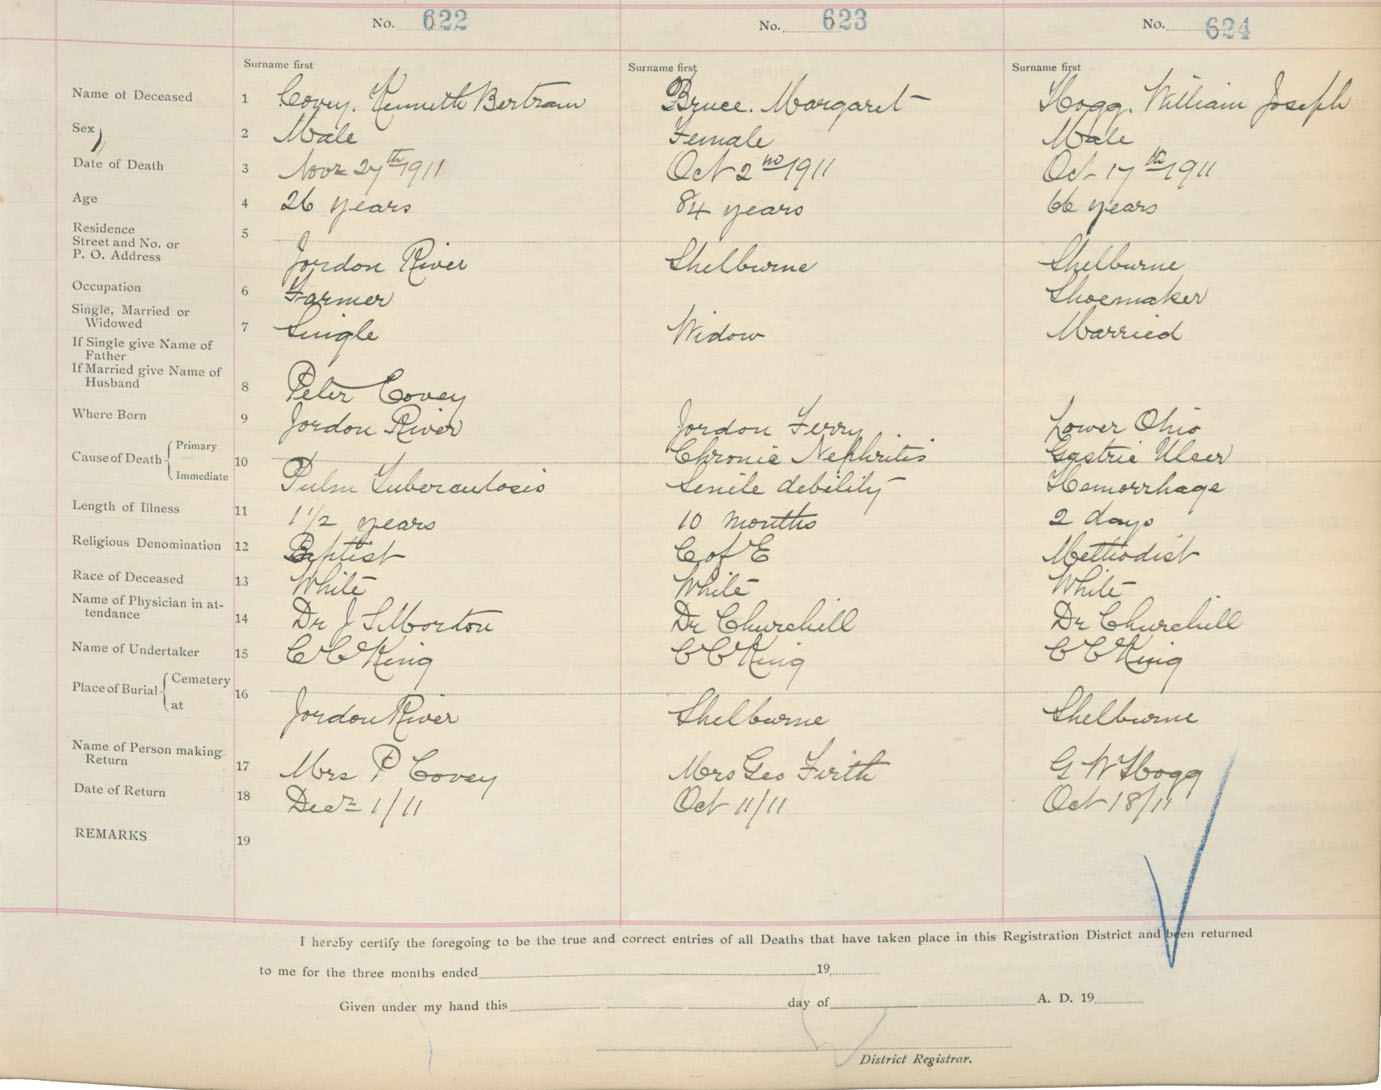 No. 622 No. 623 No. 624
Surname first Surname first Surname first
Name of Deceased 1 Covey. Kenneth Bertram Bruce. Margaret Hogg. William Joseph
Sex 2 Male Female Male
Date of Death 3 Novr 27th 1911 Oct 2nd 1911 Oct 17th 1911
Age 4 26 years 84 years 66 years
Residence
Street and No. or 5
P. O. Address Jordon River Shelburne Shelburne
Occupation 6 Farmer Shoemaker
Single, Married or
Widowed 7 Single Widow Married
If Single give Name of
Father
If Married give Name of
Husband 8 Peter Covey
Where Born 9 Jordon River Jordon Ferry Lower Ohio
Cause of Death Primary 10 Chronic Nephritis Gastric Ulcer
Immediate Pulm Tuberculosis Senile debility Hemorrhage
Length of Illness 11 1 1/2 years 10 months 2 days
Religious Denomination 12 Baptist C of E Methodist
Race of Deceased 13 White White White
Name of Physician in at-
tendance 14 Dr J S Morton Dr Churchill Dr Churchill
Name of Undertaker 15 C C King C C King C C King
Place of Burial Cemetery 16
at Jordon River Shelburne Shelburne
Name of Person making
Return 17 Mrs P Covey Mrs Geo Firth G W Hogg
Date of Return 18 Decr 1/11 Oct 11/11 Oct 18/11
REMARKS 19
I hereby certify the foregoing to be the true and correct entries of all Deaths that have taken place in this Registration District and been returned
to me for the three months ended 19
Given under my hand this day of A. D. 19
District Registrar.